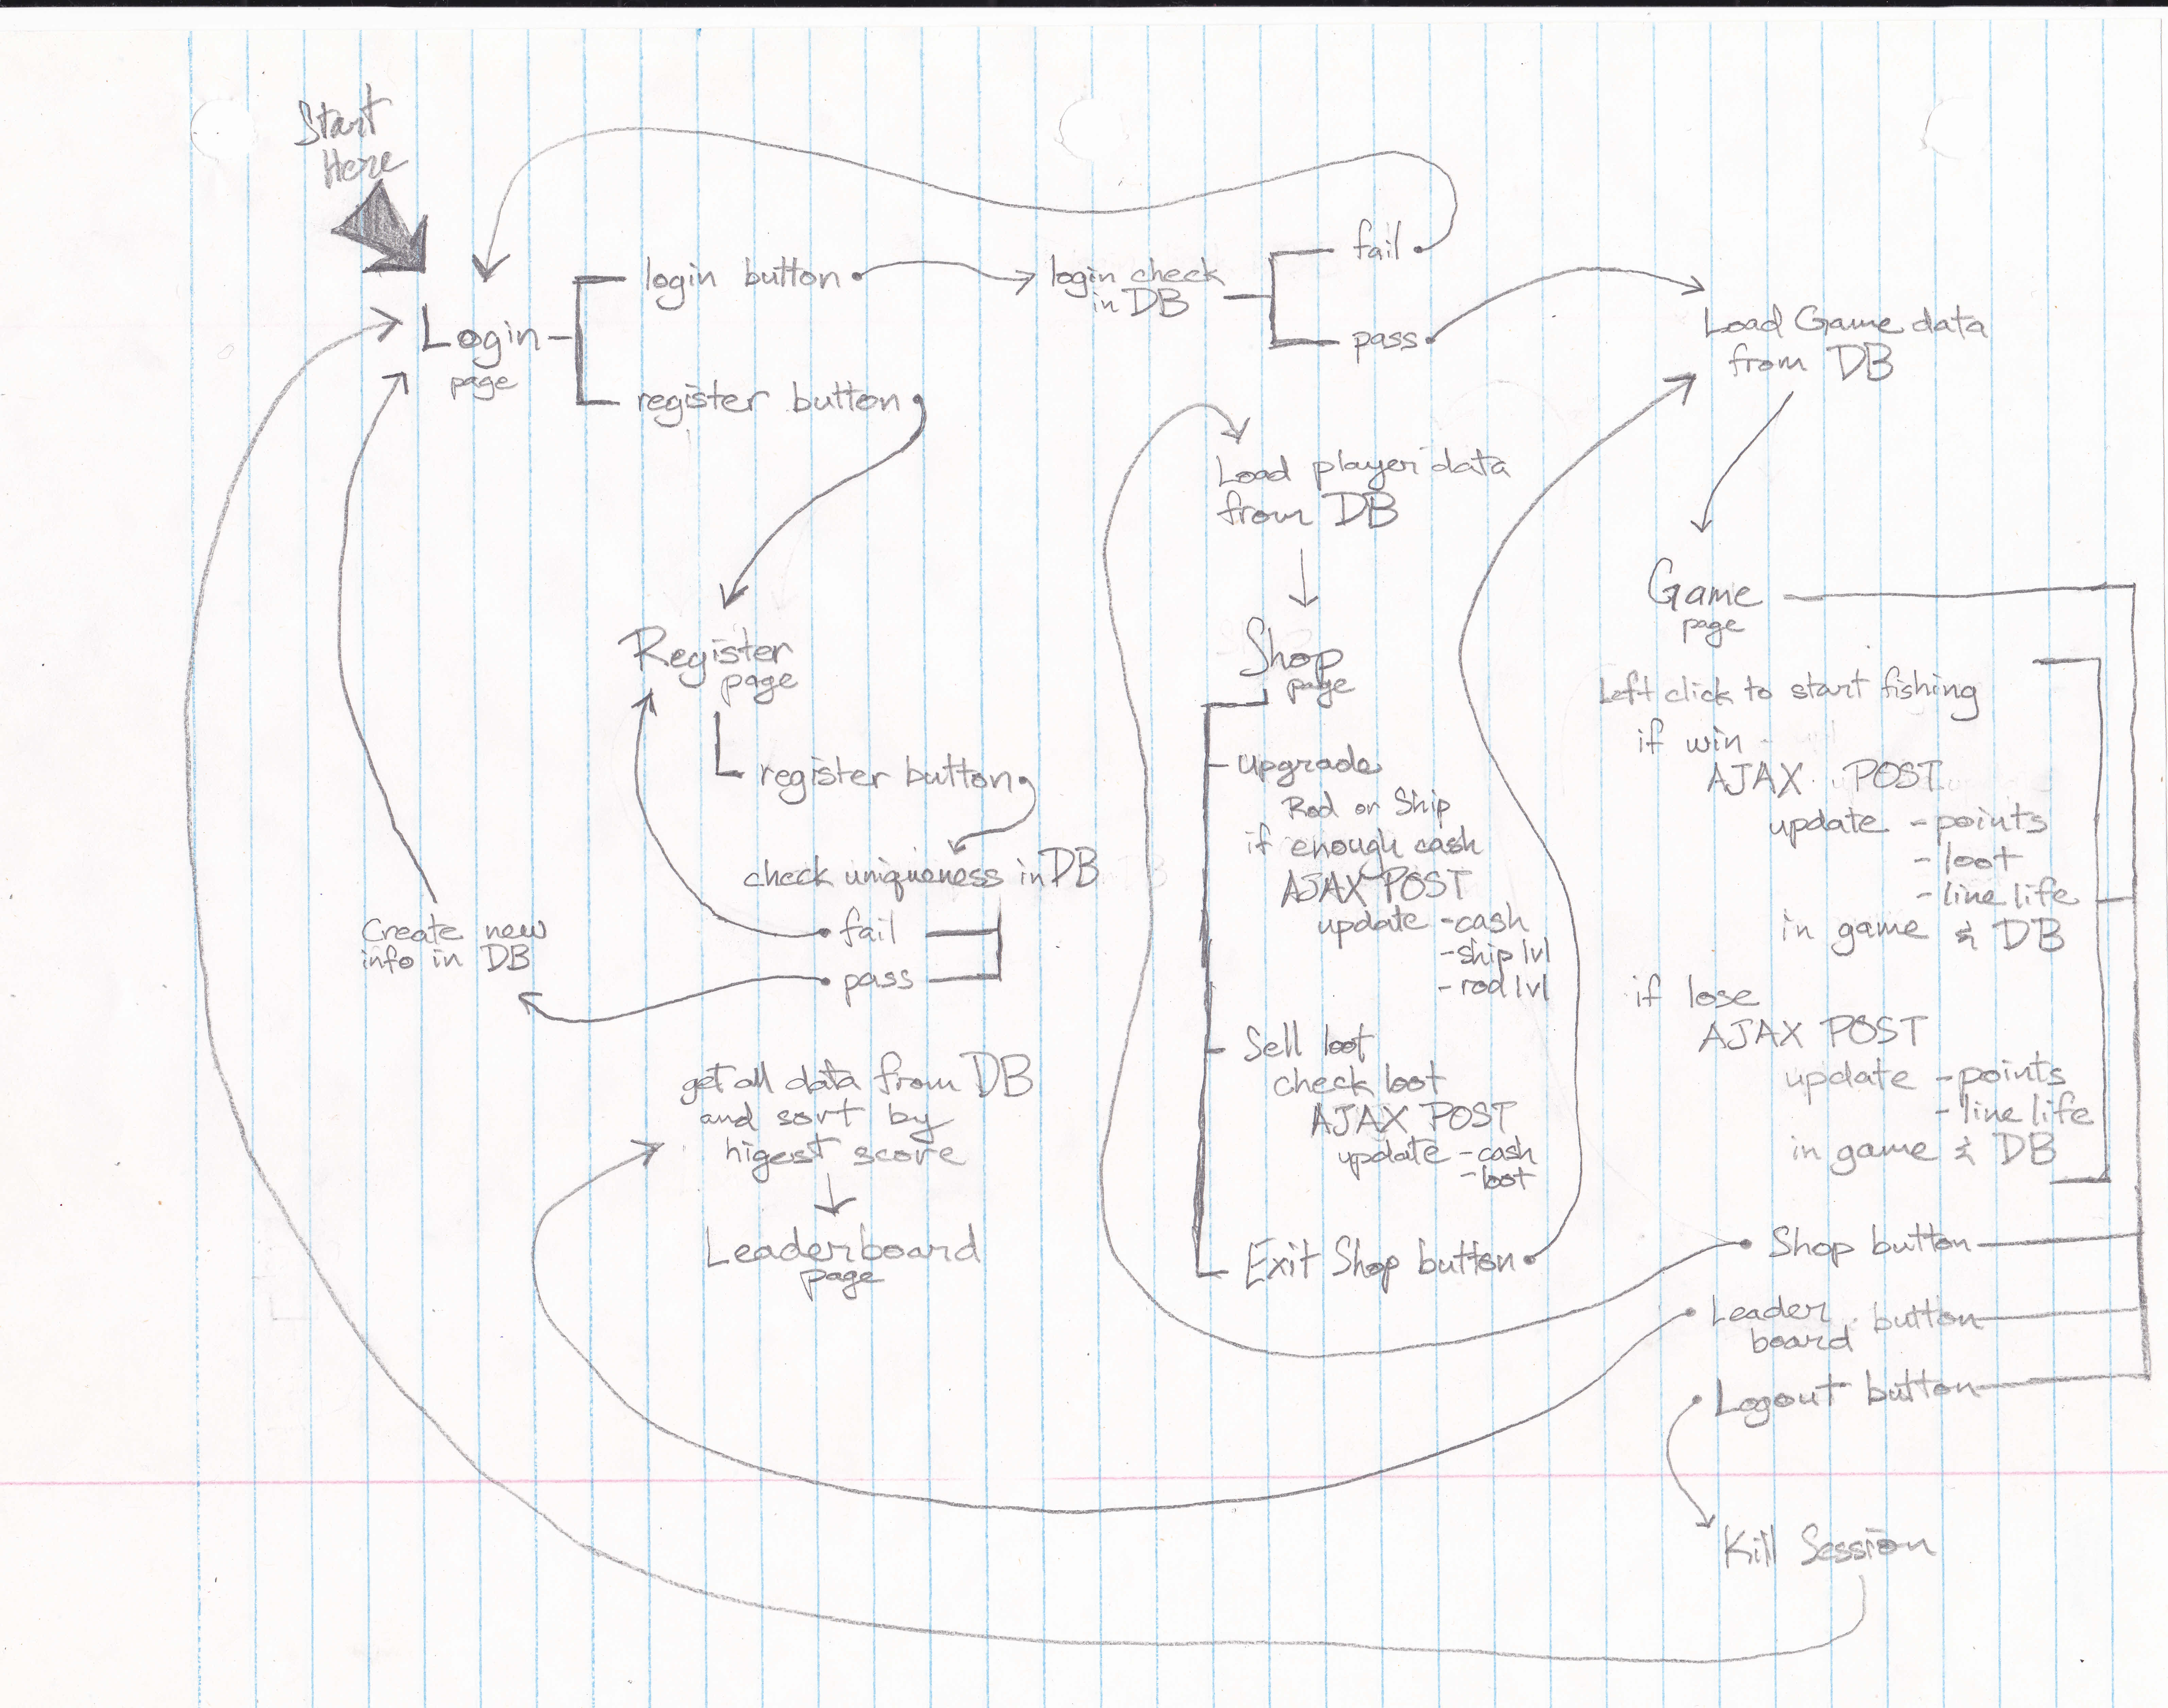 Start
Here
Login
page
login button
register button
login check
in DB
fail
pass
Load Game data
from DB
Register
page
register button
check uniqueness in DB
fail
pass
Create new
info in DB
get all data from DB
and sort by
higest score
Leaderboard
page
Load player data
from DB
Shop
page
upgrade
Rod or Ship
if enough cash
AJAX POST
update - cash
- ship lvl
- rod lvl
Sell loot
check loot
AJAX POST
update - cash
- loot
Exit Shop button
Game
page
Left click to start fishing
if win
AJAX POST
update - points
- loot
- line life
in game & DB
if lose
AJAX POST
update - points
- line life
in game & DB
Shop button
Leader button
board
Logout button
Kill Session